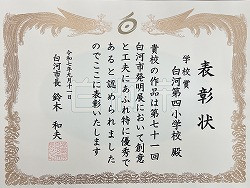 表彰状
学校賞
白河第四小学校 殿
貴校の作品は第七十一回
白河市発明展において創意
と工夫にあふれ特に優秀で
あると認められました
のでここに表彰いたします
令和元年九月十一日
白河市長 鈴木和夫